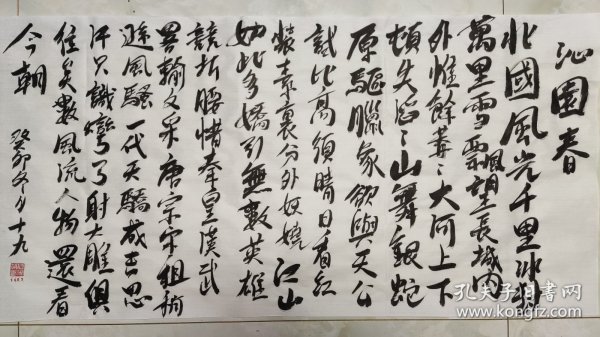 沁園春
北國風光千里冰封
萬里雪飄望長城內
外惟餘莽〻大河上下
頓失滔〻山舞銀蛇
原驅臘象欲與天公
試比高須晴日看紅
裝素裹分外妖嬈江山
如此多嬌引無數英雄
競折腰惜秦皇漢武
略輸文采唐宗宋祖稍
遜風騷一代天驕成吉思
汗只識彎弓射大雕俱
往矣數風流人物還看
今朝
癸卯冬月十九
孔夫子旧书网
www.kongfz.com